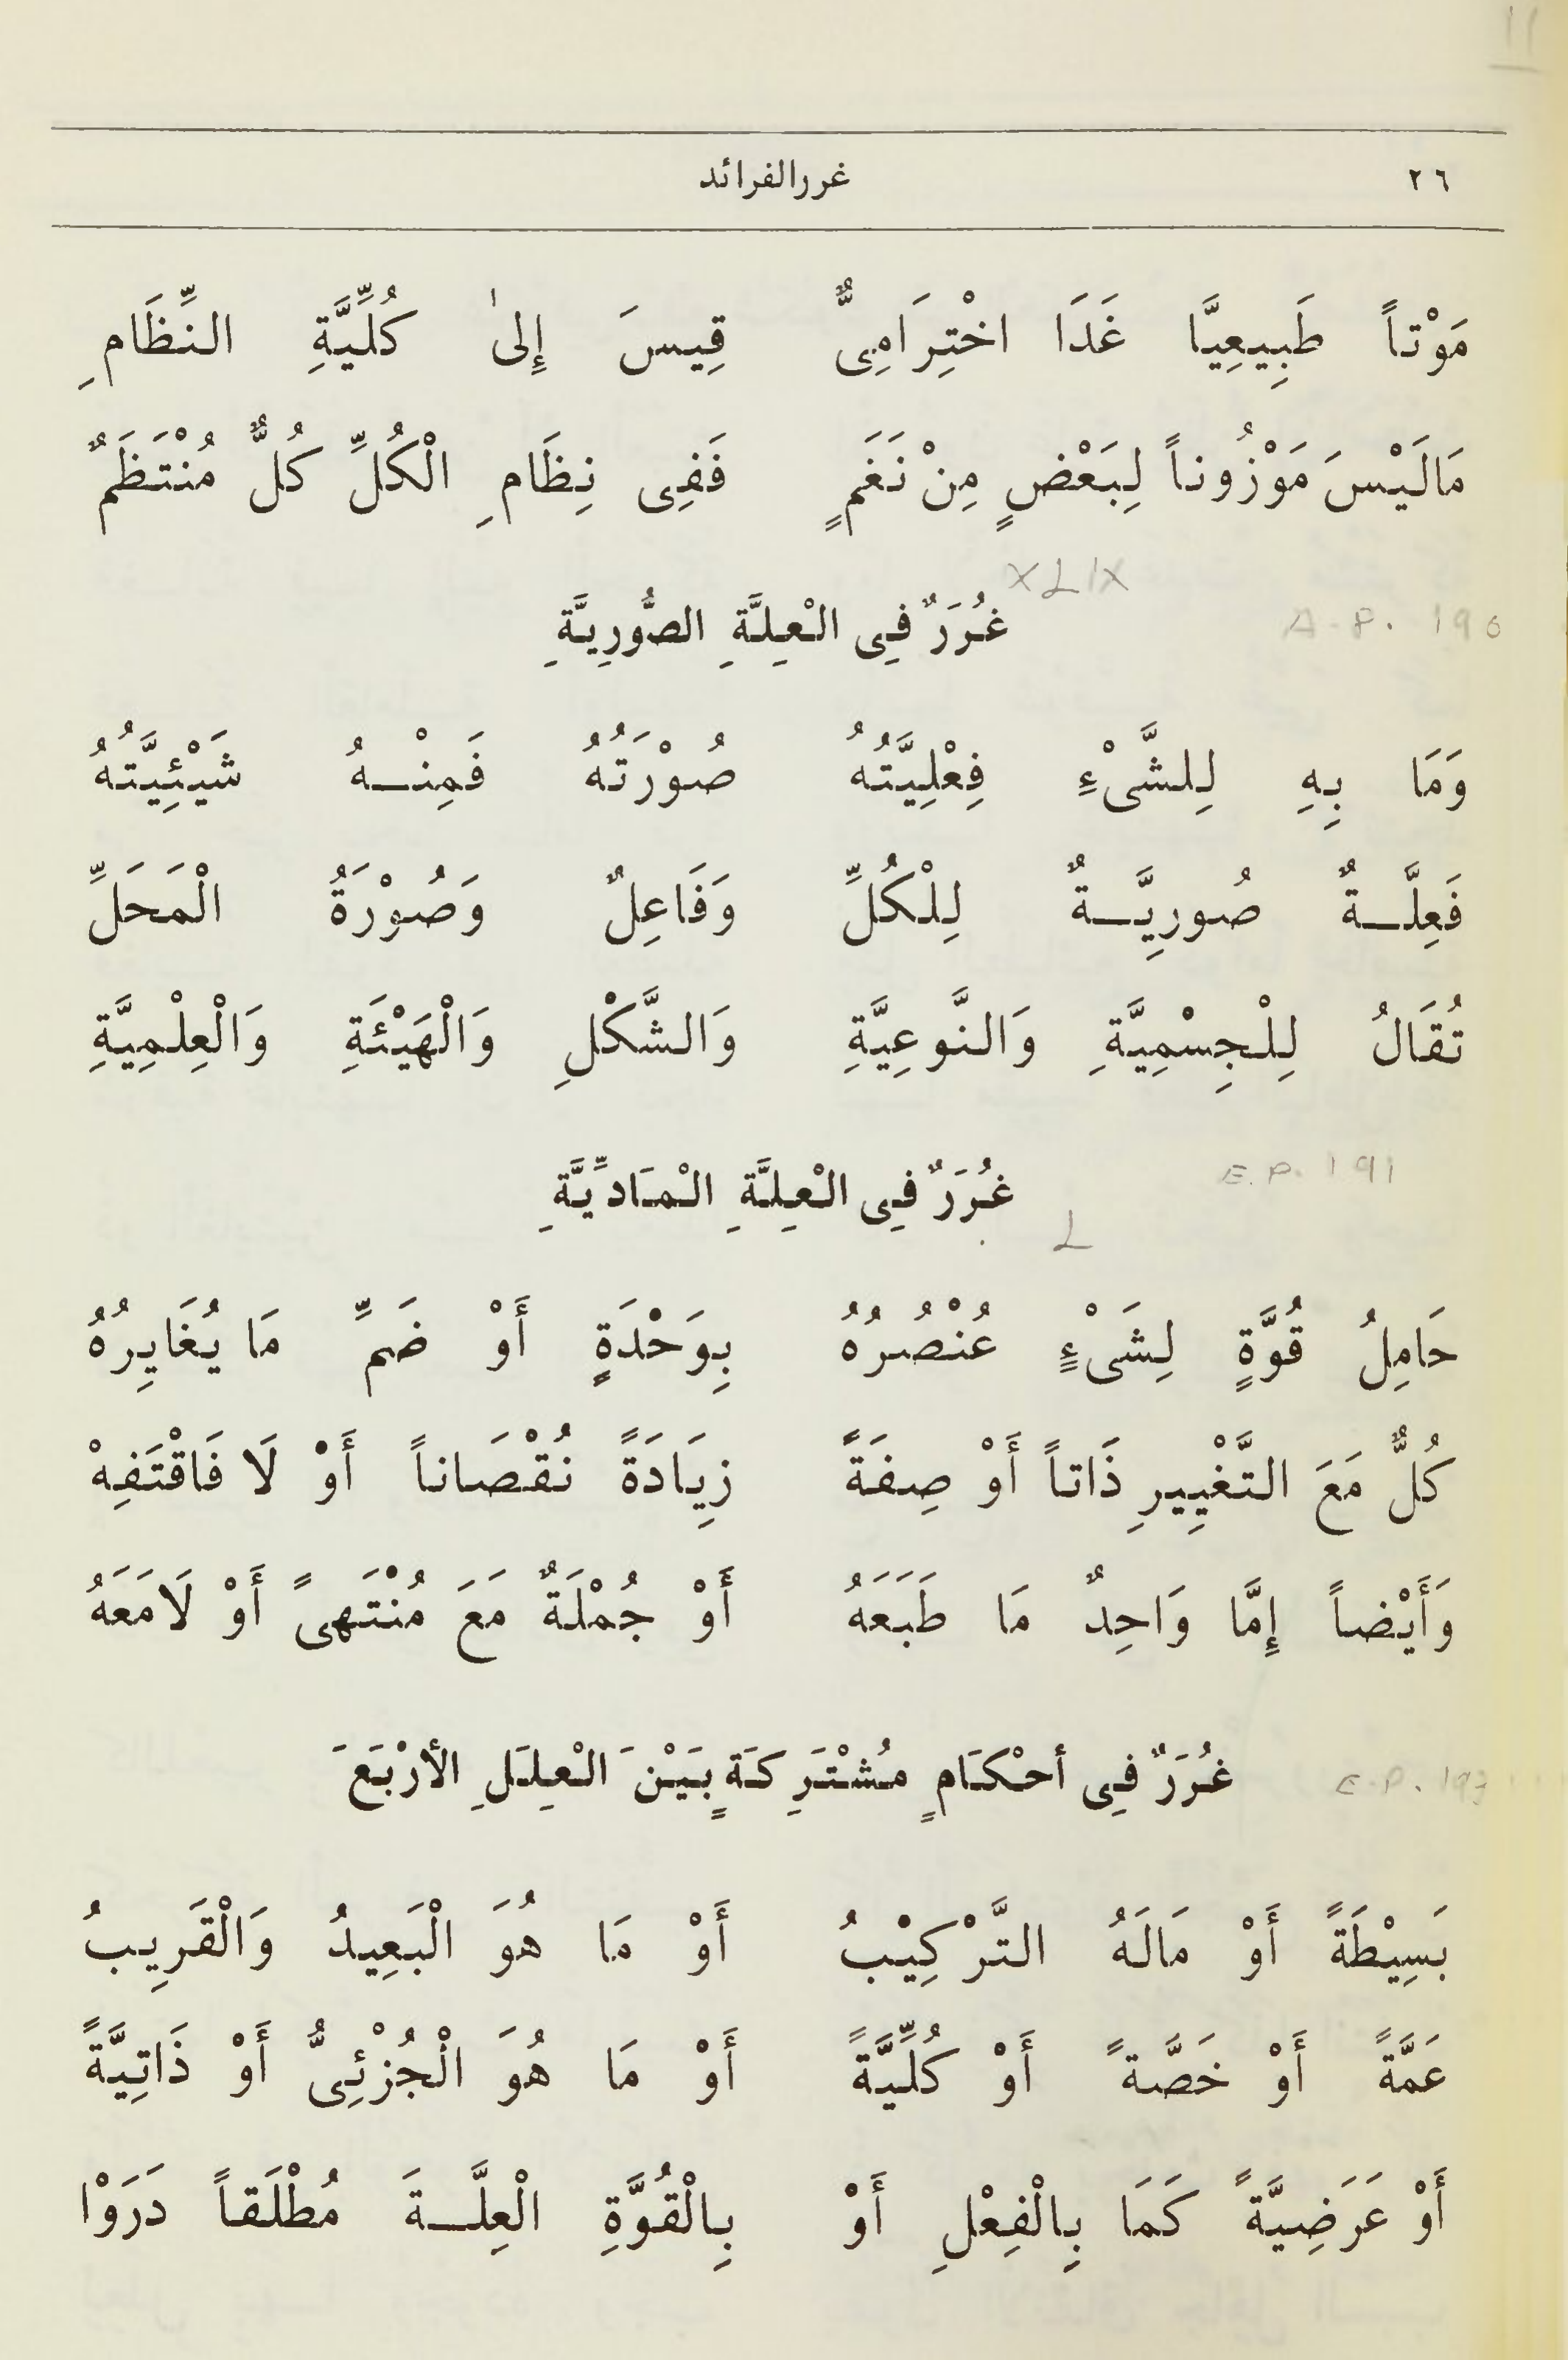 11
٢٦ غررالفرائد
مَوْتاً طَبِيعِيَّا غَدَا اخْتِرَامِىٌّ قِيسَ إِلىٰ كُلِّيَّةِ النِّظَامِ
مَالَيْسَ مَوْزُوناً لِبَعْضٍ مِنْ نَغَمٍ فَفِى نِظَامِ الْكُلِّ كُلٌّ مُنْتَظَمٌ
XLIX
غُرَرٌ فِى الْعِلَّةِ الصُّورِيَّةِ A.P. 190
وَمَا بِهِ لِلشَّىْءِ فِعْلِيَّتُهُ صُوْرَتُهُ فَمِنْهُ شَيْئِيَّتُهُ
فَعِلَّةٌ صُورِيَّةٌ لِلْكُلِّ وَفَاعِلٌ وَصُوْرَةُ الْمَحَلِّ
تُقَالُ لِلْجِسْمِيَّةِ وَالنَّوعِيَّةِ وَالشَّكْلِ وَالْهَيْئَةِ وَالْعِلْمِيَّةِ
غُرَرٌ فِى الْعِلَّةِ الْمَادِّيَّةِ E.P. 191
L
حَامِلُ قُوَّةٍ لِشَىْءٍ عُنْصُرُهُ بِوَحْدَةٍ أَوْ ضَمِّ مَا يُغَايِرُهُ
كُلٌّ مَعَ التَّغْيِيرِ ذَاتاً أَوْ صِفَةً زِيَادَةً نُقْصَاناً أَوْ لَا فَاقْتَفِهْ
وَأَيْضاً إِمَّا وَاحِدٌ مَا طَبَعَهُ أَوْ جُمْلَةٌ مَعَ مُنْتَهىً أَوْ لَامَعَهُ
غُرَرٌ فِى أحْكَامٍ مُشْتَرِكَةٍ بَيْنَ الْعِلَلِ الأرْبَعَ E.P. 193
بَسِيْطَةً أَوْ مَالَهُ التَّرْكِيْبُ أَوْ مَا هُوَ الْبَعِيدُ وَالْقَرِيبُ
عَمَّةً أَوْ خَصَّةً أَوْ كُلِّيَّةً أَوْ مَا هُوَ الْجُزْئِىُّ أَوْ ذَاتِيَّةً
أَوْ عَرَضِيَّةً كَمَا بِالْفِعْلِ أَوْ بِالْقُوَّةِ الْعِلَّةَ مُطْلَقاً دَرَوْا